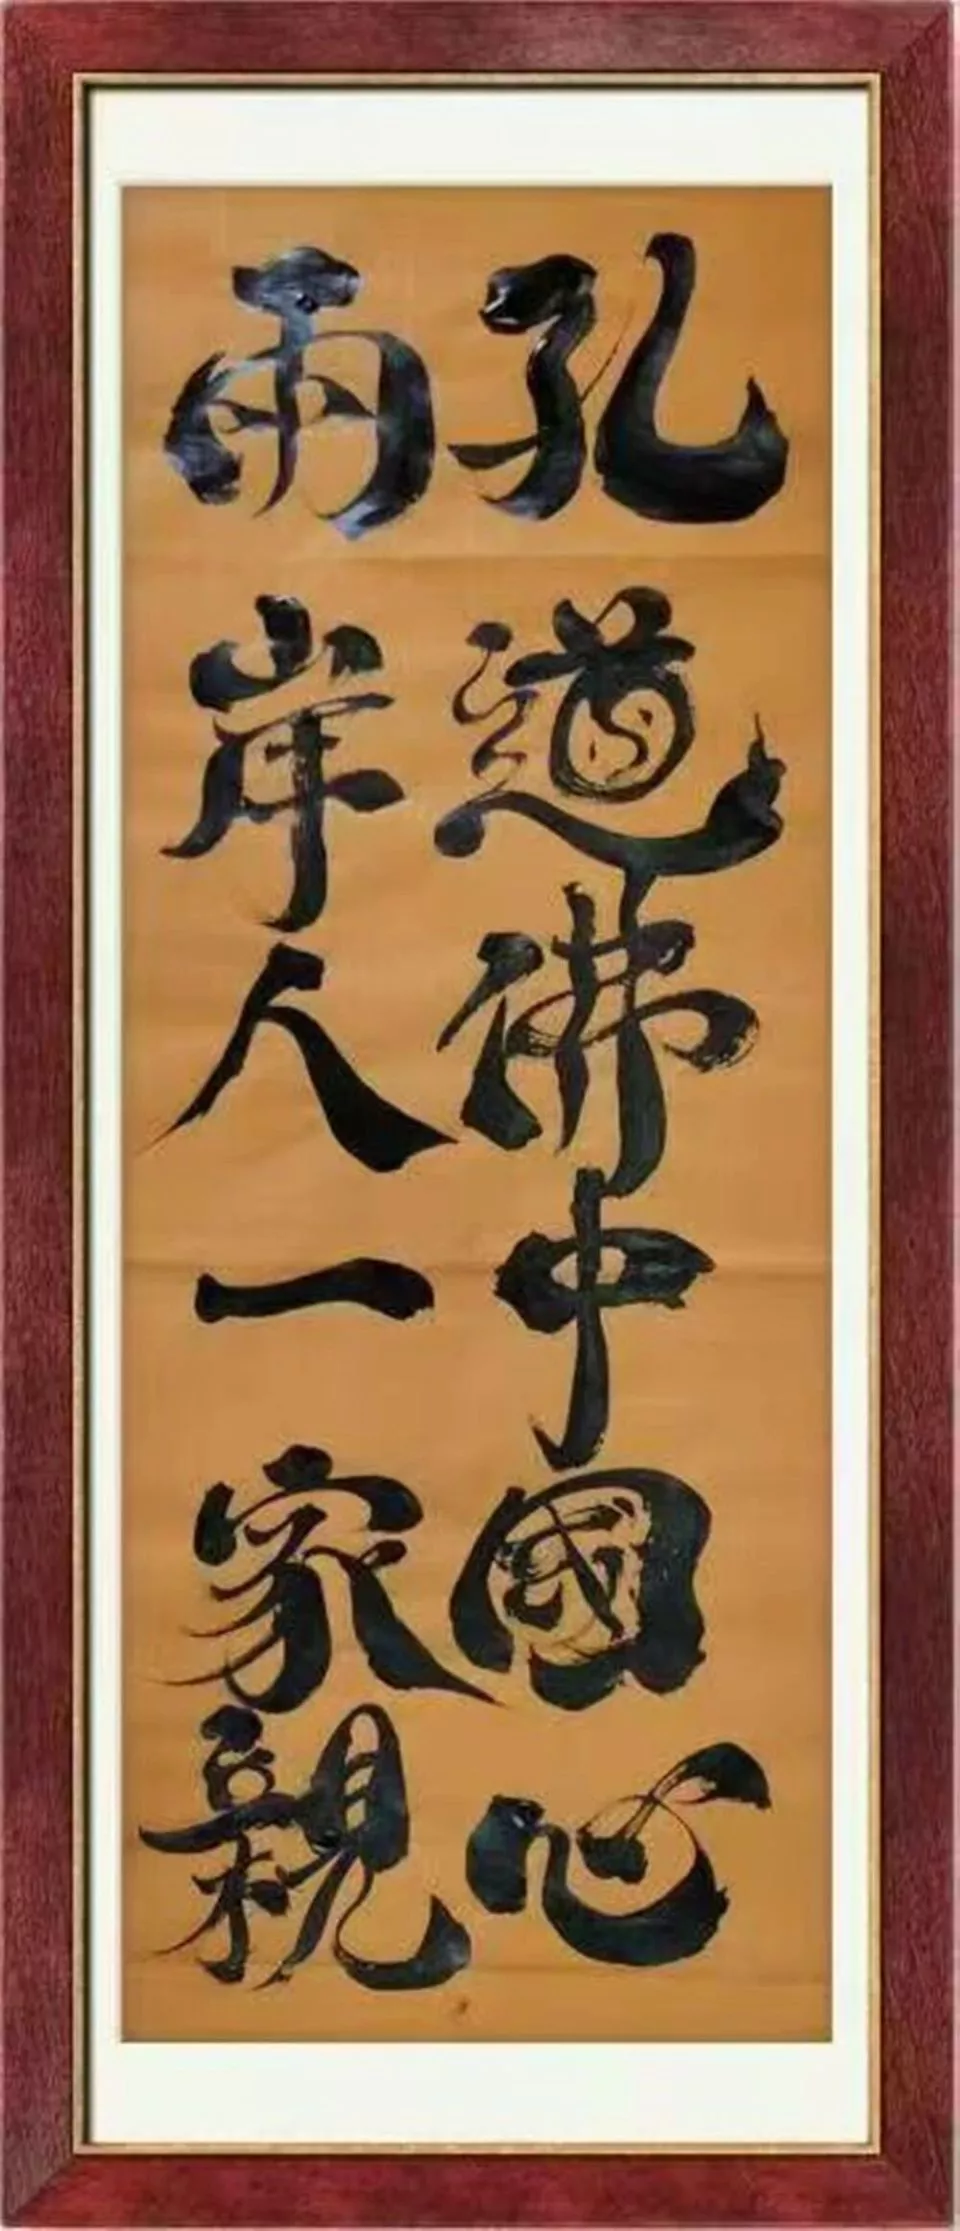 孔道佛中國心
兩岸人一家親